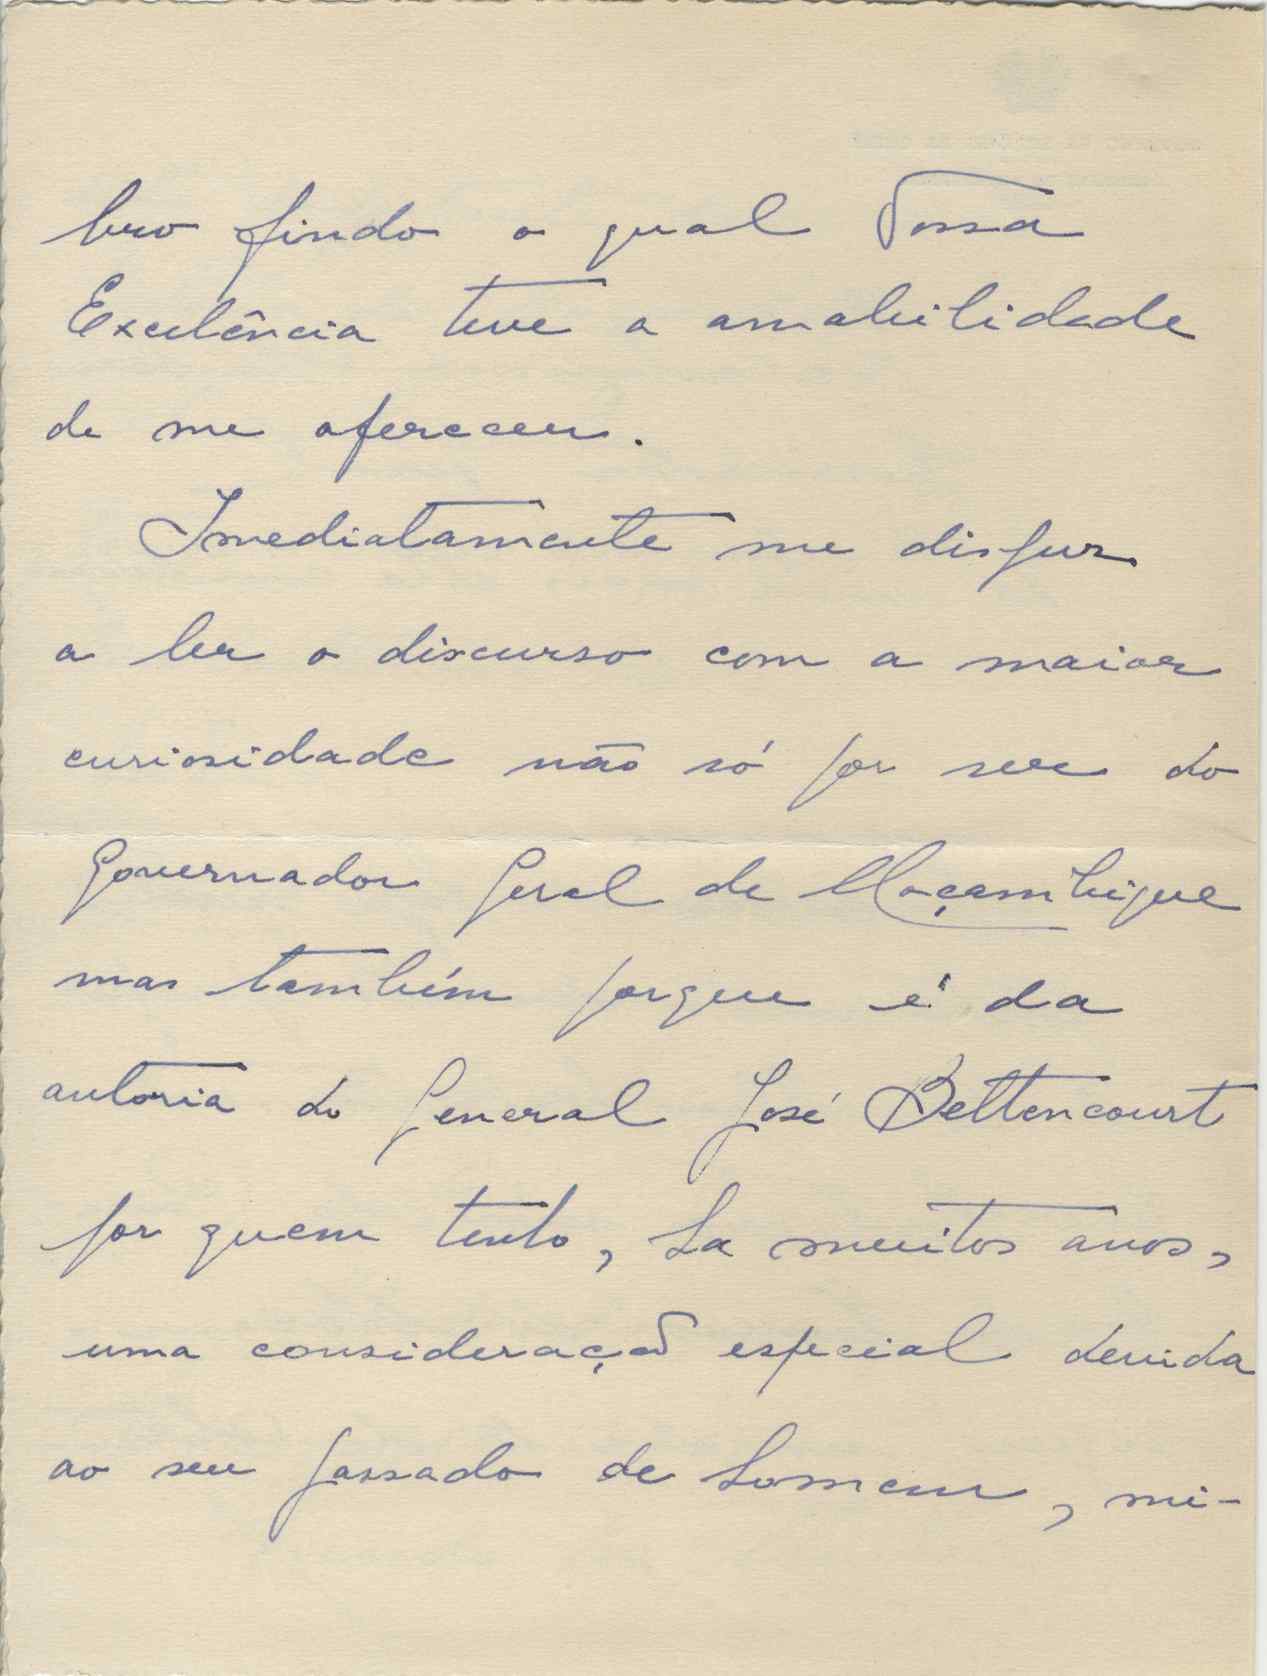 bro findo o qual Vossa
Excelência teve a amabilidade
de me oferecer.
Imediatamente me dispuz
a ler o discurso com a maior
curiosidade não só por ser do
Governador Geral de Moçambique
mas também porque é da
autoria do General José Bettencourt
por quem tenho, ha muitos anos,
uma consideração especial devida
ao seu passado de homem, mi-